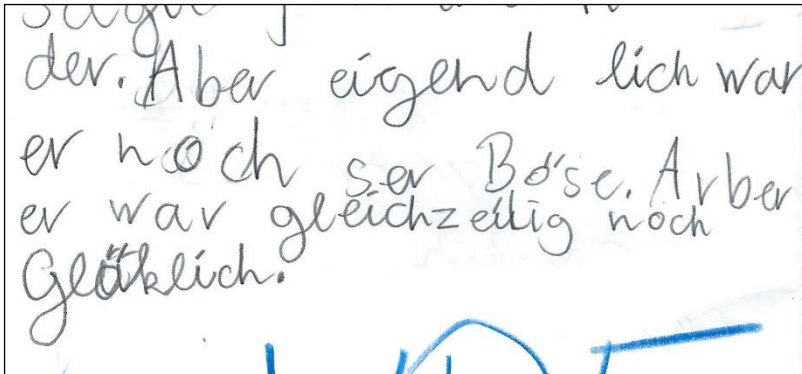 der. Aber eigend lich war
er noch ser Böse. Arber
er war gleichzeitig noch
Glöklich.